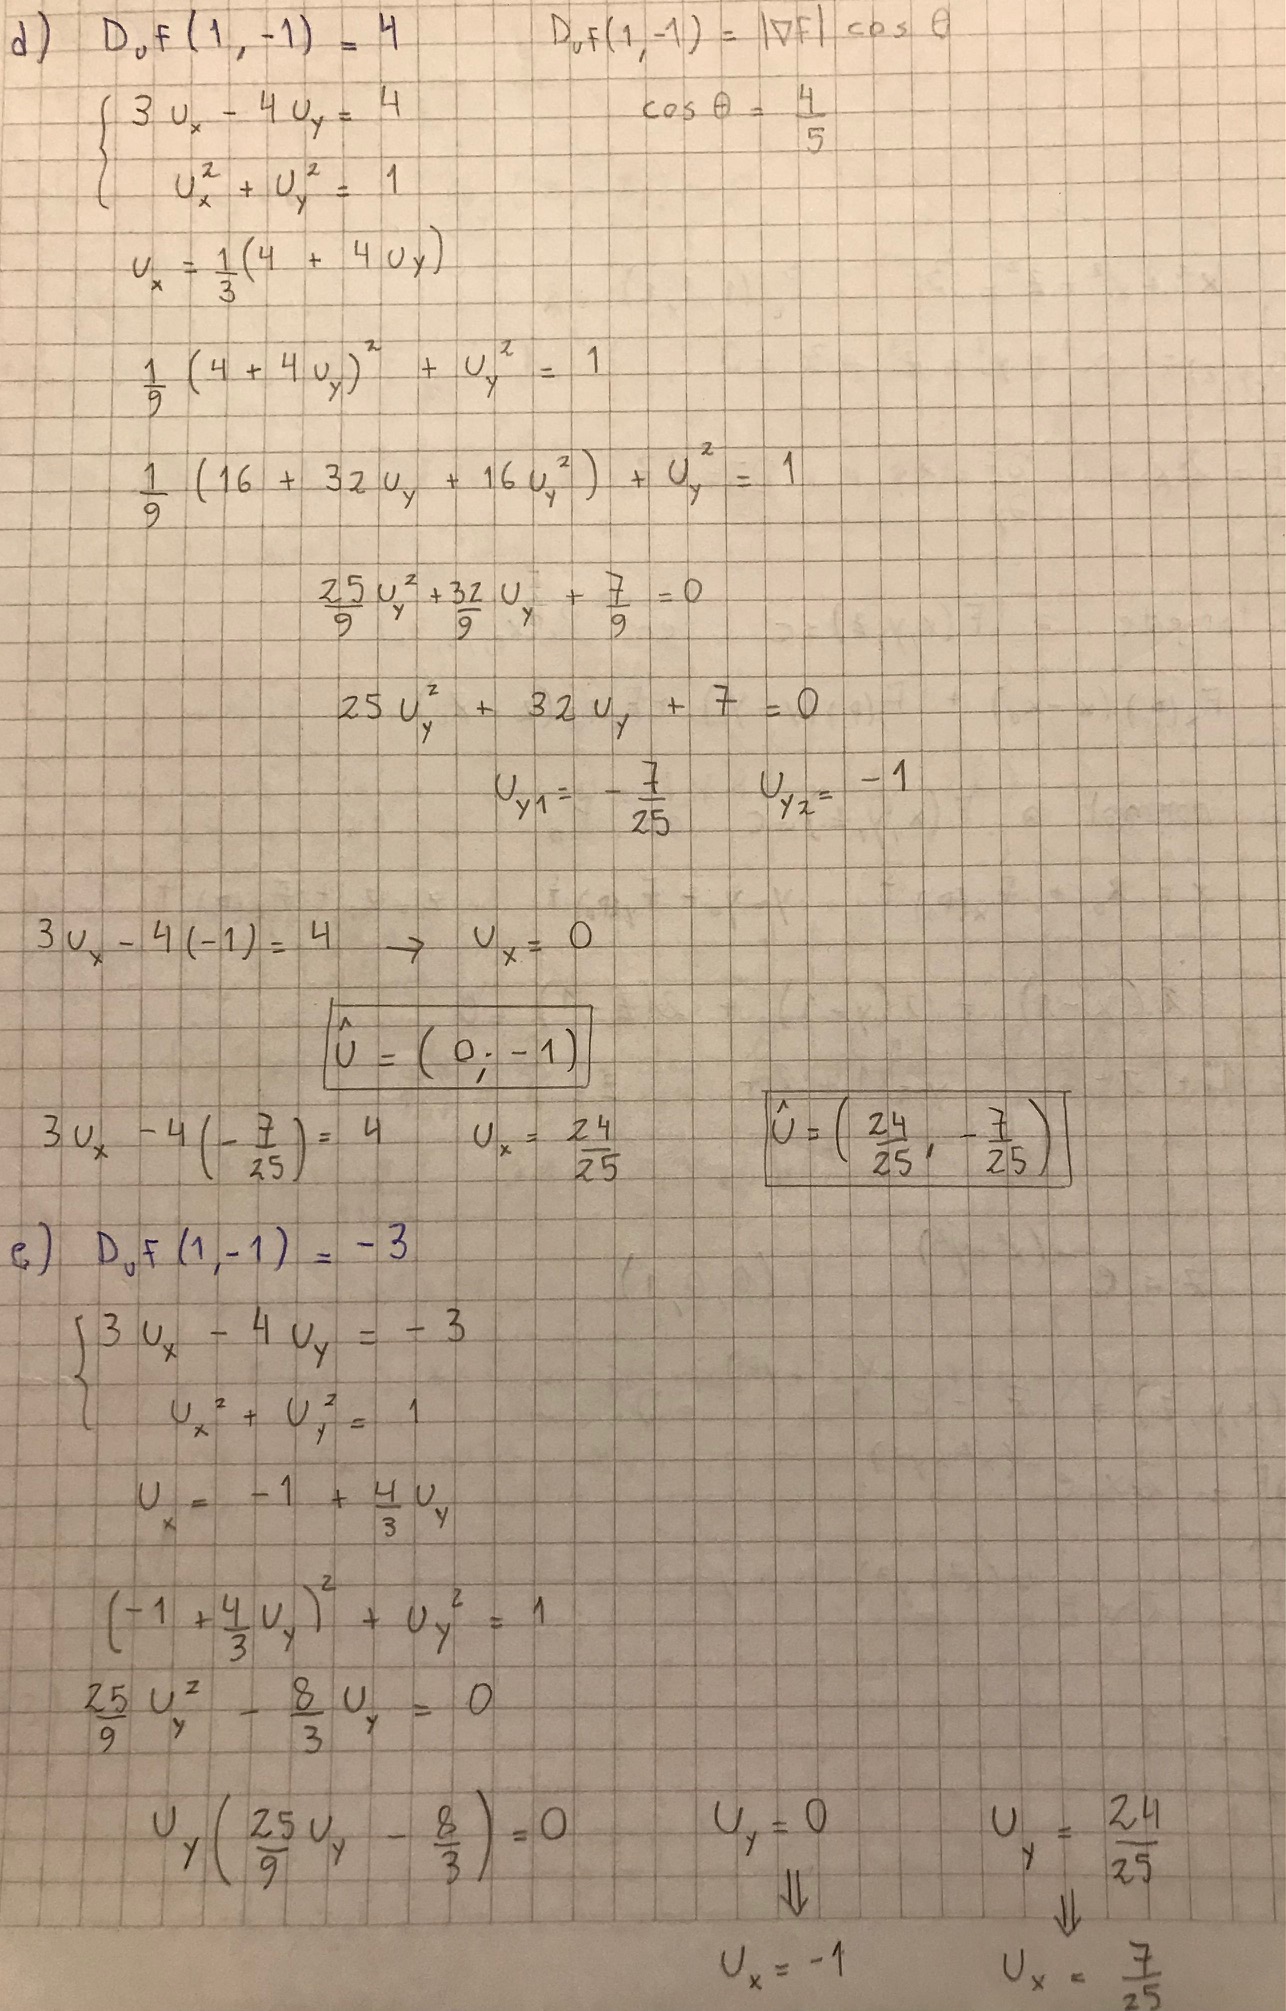 d) DᵤF(1, -1) = 4 DᵤF(1, -1) = |∇F| cos θ
{ 3 Uₓ - 4 U_y = 4 cos θ = 4/5
Uₓ² + U_y² = 1
Uₓ = 1/3 (4 + 4 U_y)
1/9 (4 + 4 U_y)² + U_y² = 1
1/9 (16 + 32 U_y + 16 U_y²) + U_y² = 1
25/9 U_y² + 32/9 U_y + 7/9 = 0
25 U_y² + 32 U_y + 7 = 0
U_y1 = - 7/25 U_y2 = -1
3 Uₓ - 4 (-1) = 4 → Uₓ = 0
Û = (0; -1)
3 Uₓ - 4 (- 7/25) = 4 Uₓ = 24/25 Û = (24/25, - 7/25)
e) DᵤF(1, -1) = -3
{ 3 Uₓ - 4 U_y = -3
Uₓ² + U_y² = 1
Uₓ = -1 + 4/3 U_y
(-1 + 4/3 U_y)² + U_y² = 1
25/9 U_y² - 8/3 U_y = 0
U_y (25/9 U_y - 8/3) = 0 U_y = 0 U_y = 24/25
⇓ ⇓
Uₓ = -1 Uₓ = 7/25